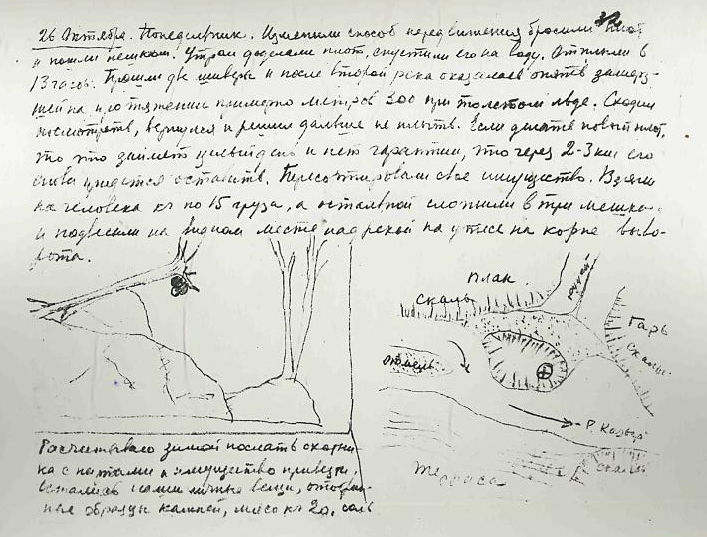 26 Октября. Понедельник. Изменили способ передвижения бросили плот
и пошли пешком. Утром доделали плот, спустили его на воду. Отплыли в
13 часов. Прошли две шиверы и после второй река оказалась опять замерз-
шей на протяжении примерно метров 300 при толстом льде. Сходили
посмотреть, вернулся и решили дальше не плыть. Если делать новый плот,
то это займет целый день и нет гарантии, что через 2-3 км его
снова придется оставить. Пересортировали свое имущество. Взяли
на человека кг по 15 груза, а остальной сложили в три мешка
и подвесили на видном месте над рекой на утесе на корне выво-
рота.
План
скалы
ручей
Гарь
скалы
Р. Кальв
скалы
Терраса
Рассчитываю зимой послать охотни-
ка с нартами и имущество привезти.
Остались наши личные вещи, отобран-
ные образцы камней, мясо кг 20, соль